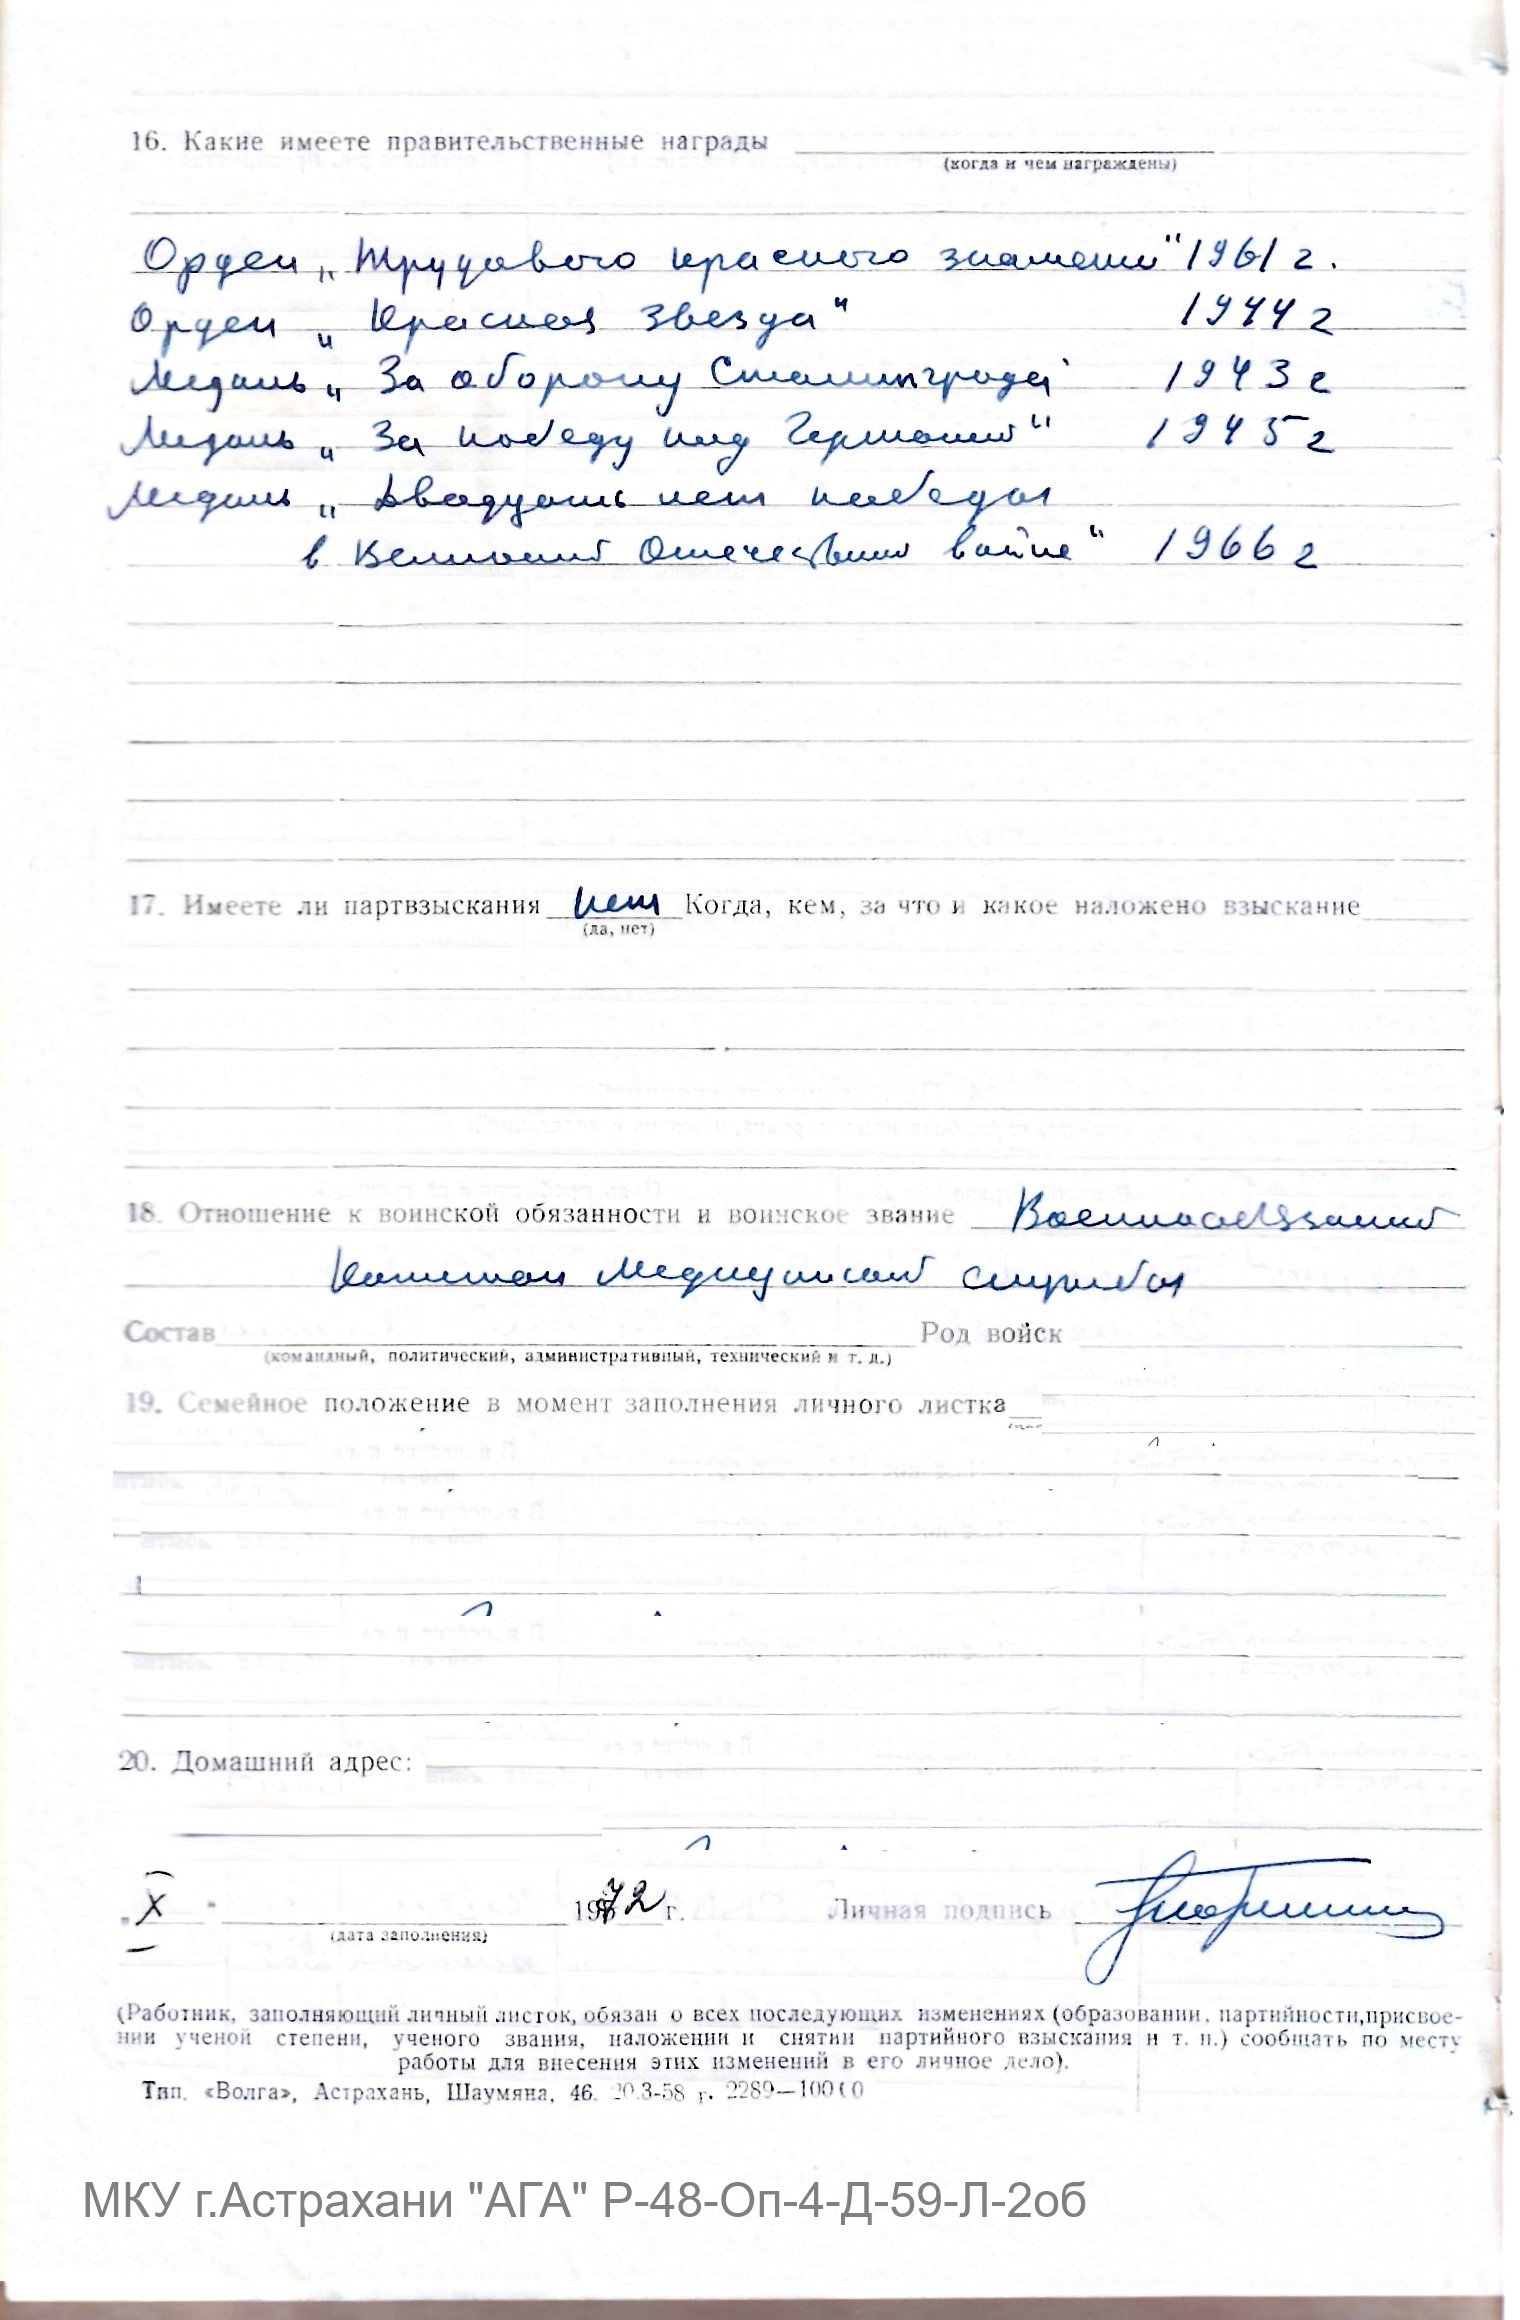 16. Какие имеете правительственные награды
(когда и чем награждены)
Орден „Трудового красного знамени" 1961 г.
Орден „Красная Звезда" 1944 г
Медаль „За оборону Сталинграда" 1943 г
Медаль „За победу над Германией" 1945 г
Медаль „Двадцать лет победы
в Великой Отечественной войне" 1966 г
17. Имеете ли партвзыскания нет Когда, кем, за что и какое наложено взыскание
(да, нет)
18. Отношение к воинской обязанности и воинское звание Военнообязанный
Капитан медицинской службы
Состав Род войск
(командный, политический, административный, технический и т. д.)
19. Семейное положение в момент заполнения личного листка
20. Домашний адрес:
„X" 1972 г. Личная подпись
(дата заполнения)
(Работник, заполняющий личный листок, обязан о всех последующих изменениях (образовании, партийности, присвое-
нии ученой степени, ученого звания, наложении и снятии партийного взыскания и т. п.) сообщать по месту
работы для внесения этих изменений в его личное дело).
Тип. «Волга», Астрахань, Шаумяна, 46. 20.3-58 г. 2289—10000
МКУ г.Астрахани "АГА" Р-48-Оп-4-Д-59-Л-2об